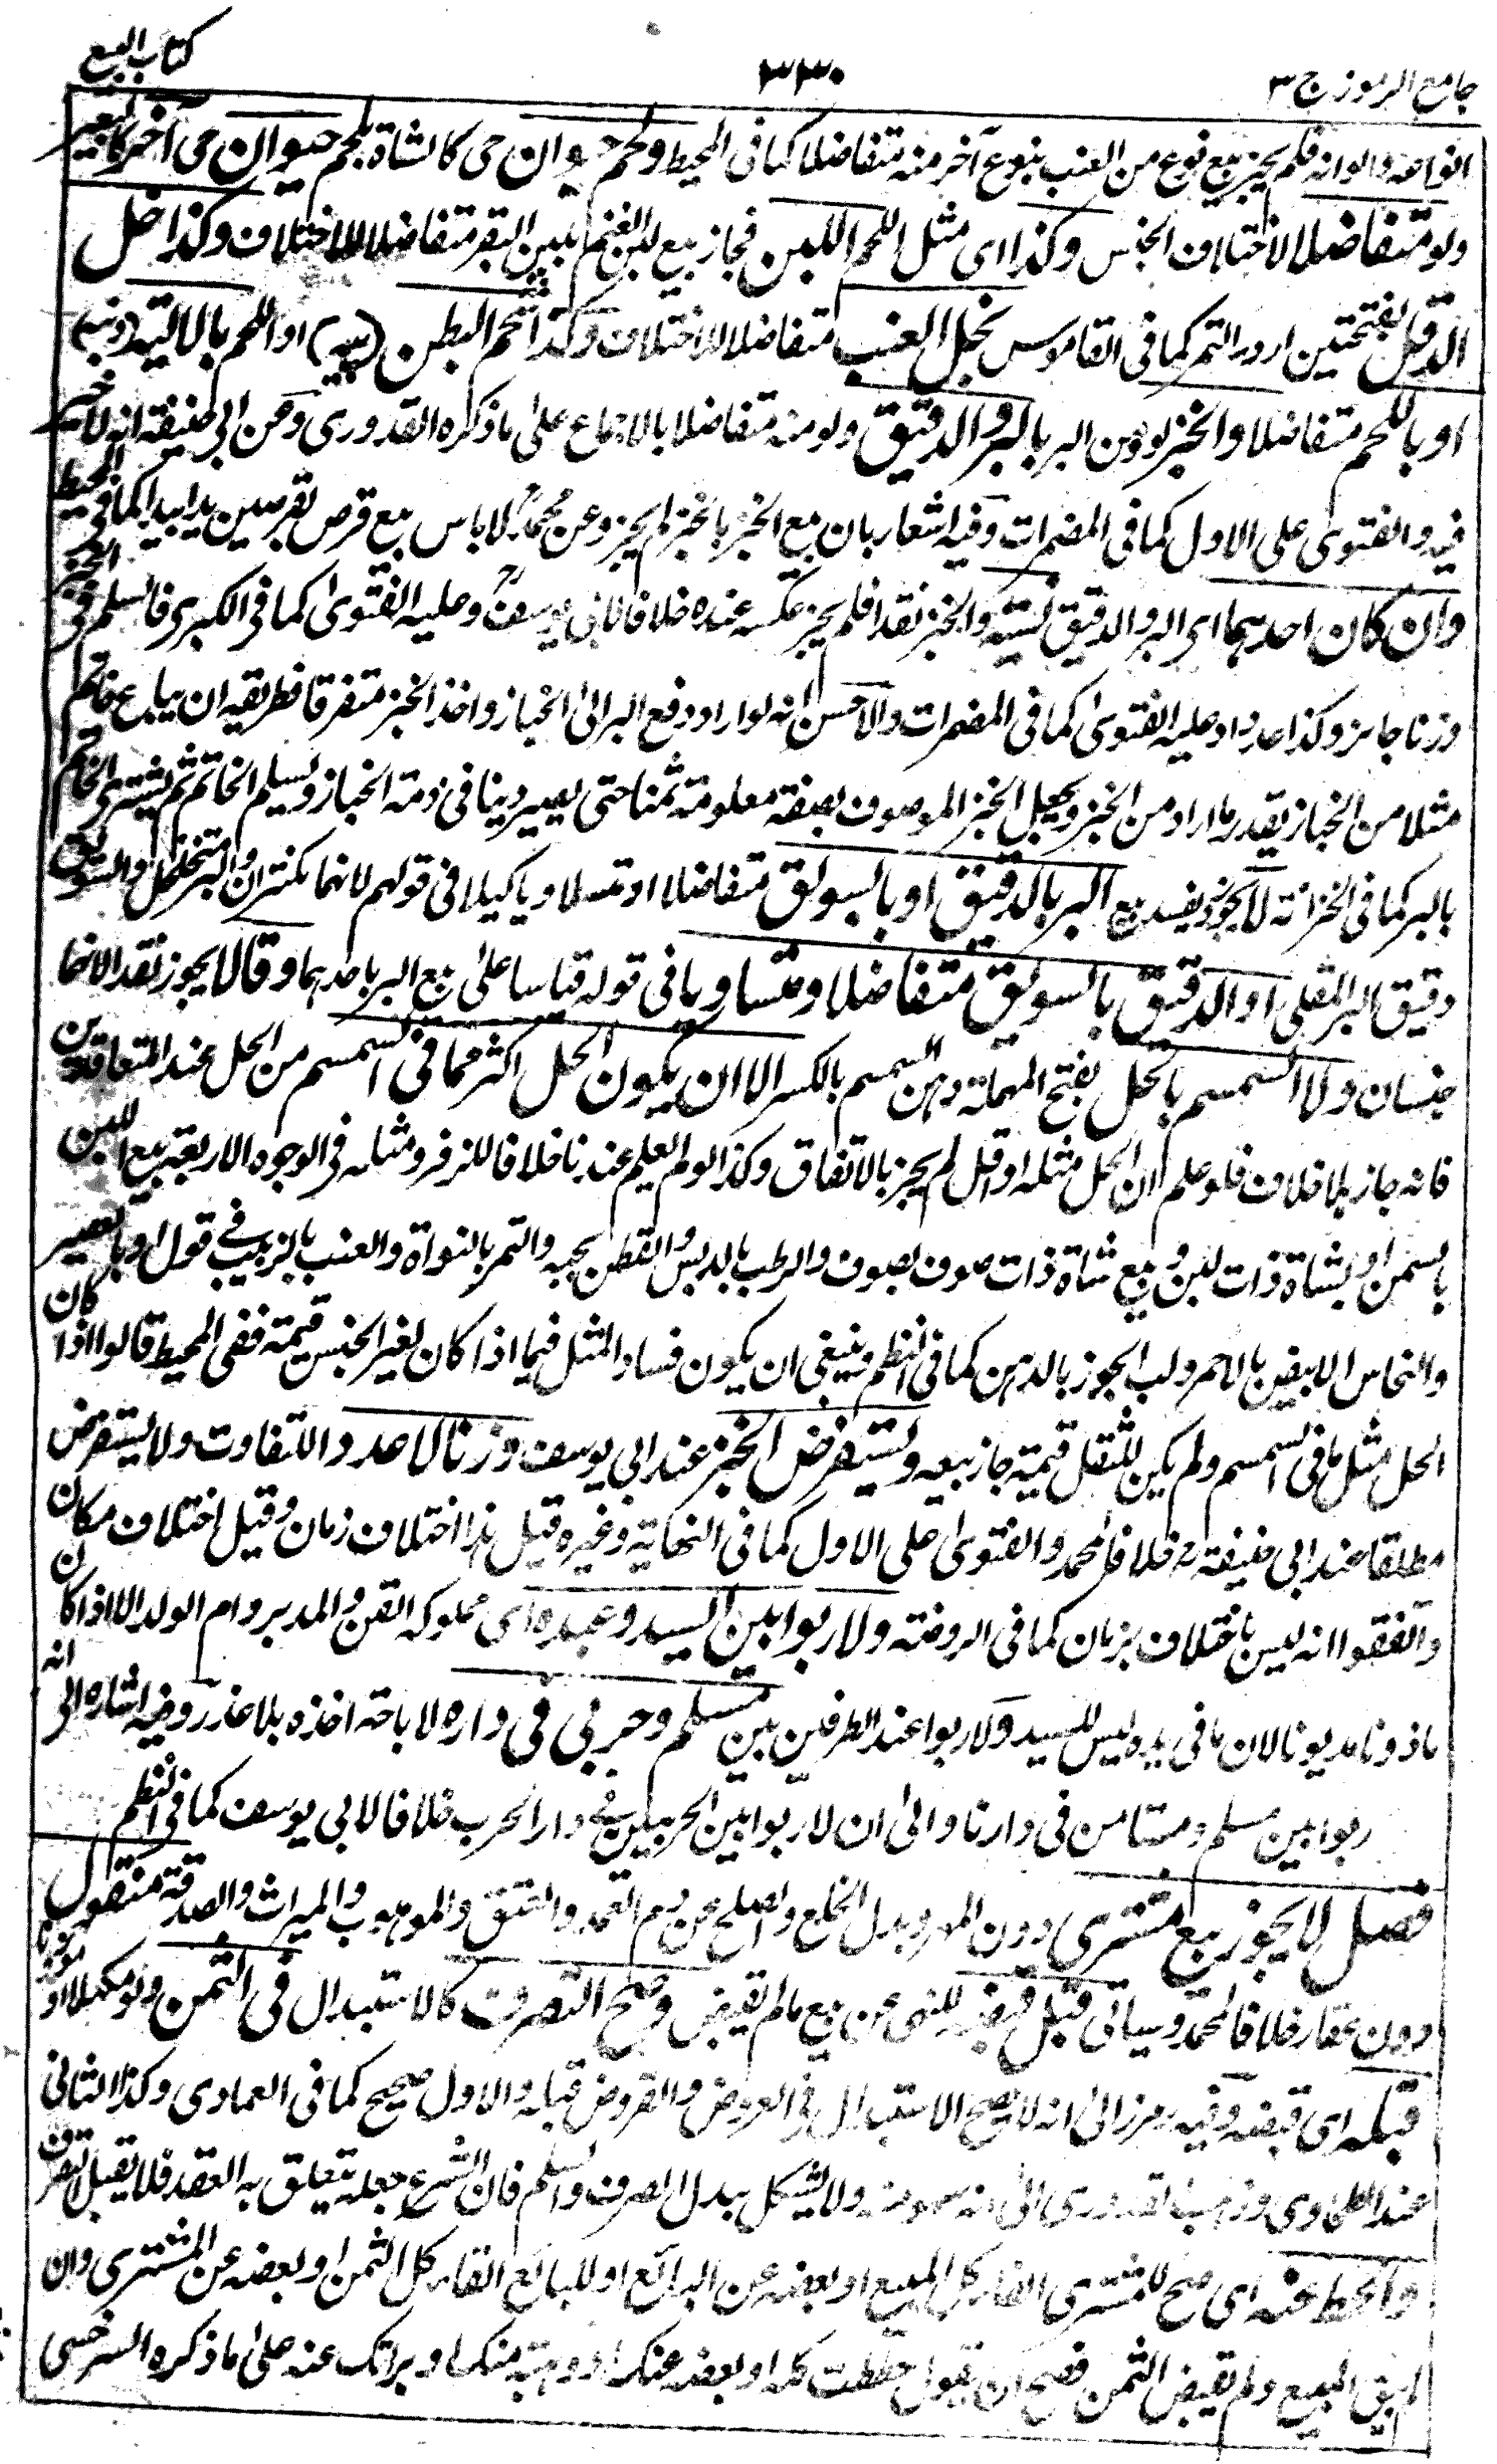 جامع الرموز ج ٣
٣٣٠
كتاب البيع
انواعه والوانه فلم يجز بيع نوع من العنب بنوع آخر منه متفاضلا كما فى المحيط ولحم حيوان حى كالشاة بلحم حيوان حى آخر كالبعير
ولو متفاضلا لاختلاف الجنس وكذا اى مثل اللحم اللبن فجاز بيع لبن الغنم بلبن البقر متفاضلا للاختلاف وكذا خل
الدقل بفتحتين اردء التمر كما فى القاموس بخل العنب متفاضلا للاختلاف وكذا شحم البطن (پيه) او اللحم بالالية (دنبه)
او باللحم متفاضلا والخبز لو من البر بالبر والدقيق ولو منه متفاضلا بالاجماع على ما ذكره القدورى وعن ابى حنيفة انه لا خير
فيه والفتوى على الاول كما فى المضمرات وفيه اشعار بان بيع الخبز بالخبز لم يجز وعن محمد لا باس ببيع قرص بقرصين يدا بيد كما فى المحيط
وان كان احدهما اى البر والدقيق نسيئة والخبز نقدا فلم يجز عكسه عنده خلافا لابى يوسف وعليه الفتوى كما فى الكبرى فالسلم فى الخبز
وزنا جايز وكذا عددا وعليه الفتوى كما فى المضمرات والاحسن انه لو اراد دفع البر الى الخباز واخذ الخبز متفرقا فطريقه ان يباع خاتم
مثلا من الخباز بقدر ما اراد من الخبز ويجعل الخبز الموصوف بصفة معلومة ثمنا حتى يصير دينا فى ذمة الخباز ويسلم الخاتم ثم يشترى الخاتم
بالبر كما فى الخزانة لا يجوز ويفسد بيع البر بالدقيق او بالسويق متفاضلا او متساويا كيلا فى قولهم لانهما مكتنزان والبر متخلخل والسويق
دقيق البر المقلى او الدقيق بالسويق متفاضلا او متساويا فى قوله قياسا على بيع البر باحدهما وقالا يجوز نقدا لانهما
جنسان ولا السمسم بالحل بفتح المهملة دهن السمسم بالكسر الا ان يكون الحل اكثر مما فى السمسم من الحل عند المتعاقدين
فانه جاز بلا خلاف فلو علم ان الحل مثله او اقل لم يجز بالاتفاق وكذا لو لم يعلم عندنا خلافا لزفر ومثله فى الوجوه الاربعة بيع اللبن
بالسمن او بشاة ذات لبن وبيع شاة ذات صوف بصوف والرطب بالدبس والقطن بحبه والتمر بالنواة والعنب بالزبيب فى قول او بالعصير
والنحاس الابيض بالاحمر ولب الجوز بالدهن كما فى النظم وينبغى ان يكون فساد المثل فيما اذا كان لغير الجنس قيمة ففى المحيط قالوا اذا كان
الحل مثل ما فى السمسم ولم يكن للثقل قيمة جاز بيعه ويستقرض الخبز عند ابى يوسف وزنا لا عددا للتفاوت ولا يستقرض
مطلقا عند ابى حنيفة خلافا لمحمد والفتوى على الاول كما فى النهاية وغيره قيل هذا اختلاف زمان وقيل اختلاف مكان
واتفقوا انه ليس باختلاف برهان كما فى الروضة ولا ربوا بين السيد وعبده اى مملوكه القن والمدبر وام الولد الا اذا كان
ماذونا مديونا لان ما فى يده ليس للسيد ولا ربوا عند الطرفين بين مسلم وحربى فى داره لاباحة اخذه بلا غدر وفيه اشارة الى انه
ربوا بين مسلم ومستامن فى دارنا والى ان لا ربوا بين الحربيين فى دار الحرب خلافا لابى يوسف كما فى النظم
فصل لا يجوز بيع مشترى دون المهر وبدل الخلع والصلح عن دم العمد والعتق والموهوب والميراث والصدقة منقول
دون عقار خلافا لمحمد وسياتى قبل قبضه للنهى عن بيع ما لم يقبض وصح التصرف كالاستبدال فى الثمن ولو مكيلا او موزونا
قبله اى قبضه وفيه رمز الى انه لا يصح الاستبدال فى العروض والقروض قبله والاول صحيح كما فى العمادى وكذا الثانى
عند الطحاوى وذهب القدورى الى انه سهو منه ولا يشكل ببدل الصرف والسلم فان الشرع جعله يتعلق به العقد فلا يقبل التصرف
والحط عنه اى صح للمشترى القاء كل المبيع او بعضه عن البائع او للبائع القاء كل الثمن او بعضه عن المشترى وان
لم يبق المبيع ولم يقبض الثمن فصح ان يقول حططت كله او بعضه عنك او وهبته منك او براتك عنه على ما ذكره السرخسى